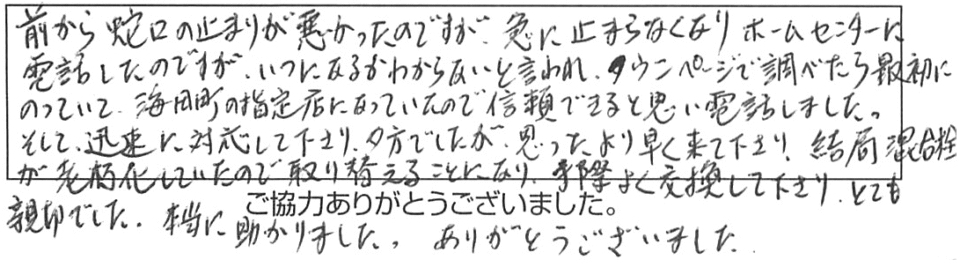 前から蛇口の止まりが悪かったのですが、急に止まらなくなりホームセンターに
電話したのですが、いつになるかわからないと言われ、タウンページで調べたら最初に
のっていて、海田町の指定店になっていたので信頼できると思い電話しました。
そして、迅速に対応して下さり、夕方でしたが、思ったより早く来て下さり、結局混合栓
が老朽化していたので取り替えることになり、手際よく交換して下さり、とても
親切でした。本当に助かりました。ありがとうございました。
ご協力ありがとうございました。